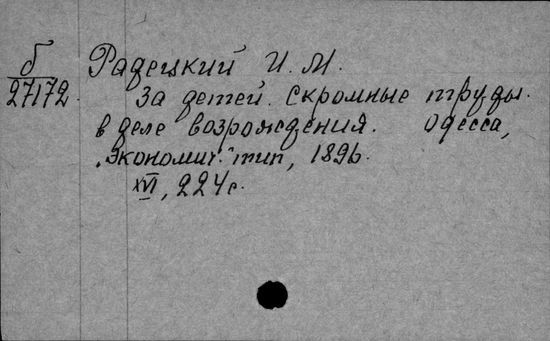 б
27172
Радецкий И. М.
За детей. Скромные труды.
в деле возрождения. Одесса,
"Экономич." тип, 1896.
XVI, 224 с.